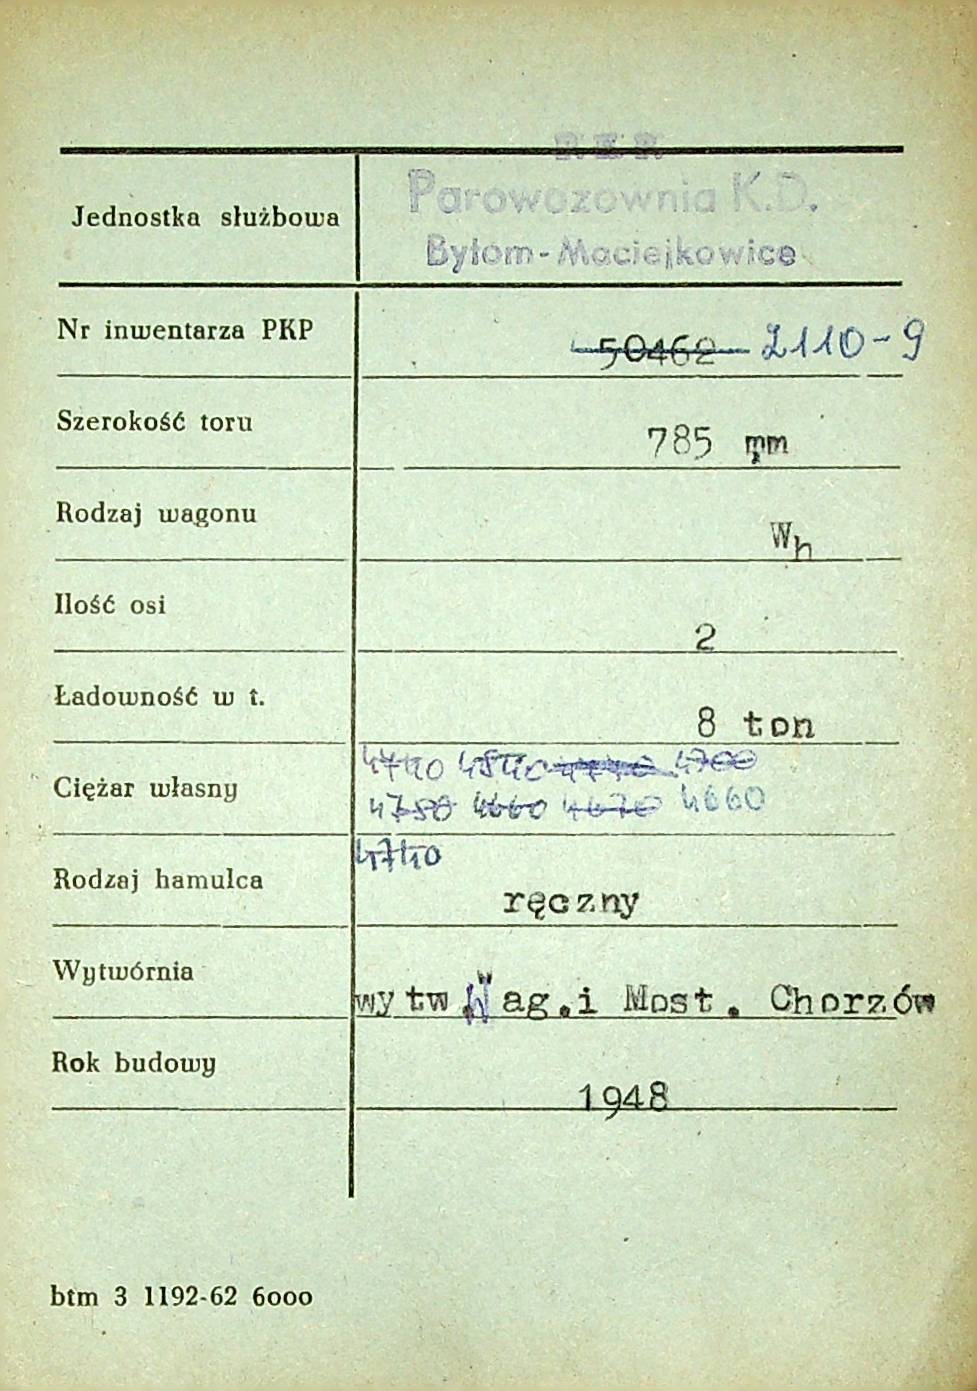 P.K.P.
Jednostka służbowa Parowozownia K.D.
Bytom-Maciejkowice
Nr inwentarza PKP 50462 2110-9
Szerokość toru 785 mm
Rodzaj wagonu Wh
Ilość osi 2
Ładowność w t. 8 ton
4740 4840 4770 4700
Ciężar własny 4750 4660 4670 4660
4740
Rodzaj hamulca ręczny
Wytwórnia wytw.Wag.i Most. Chorzów
Rok budowy 1948
btm 3 1192-62 6000